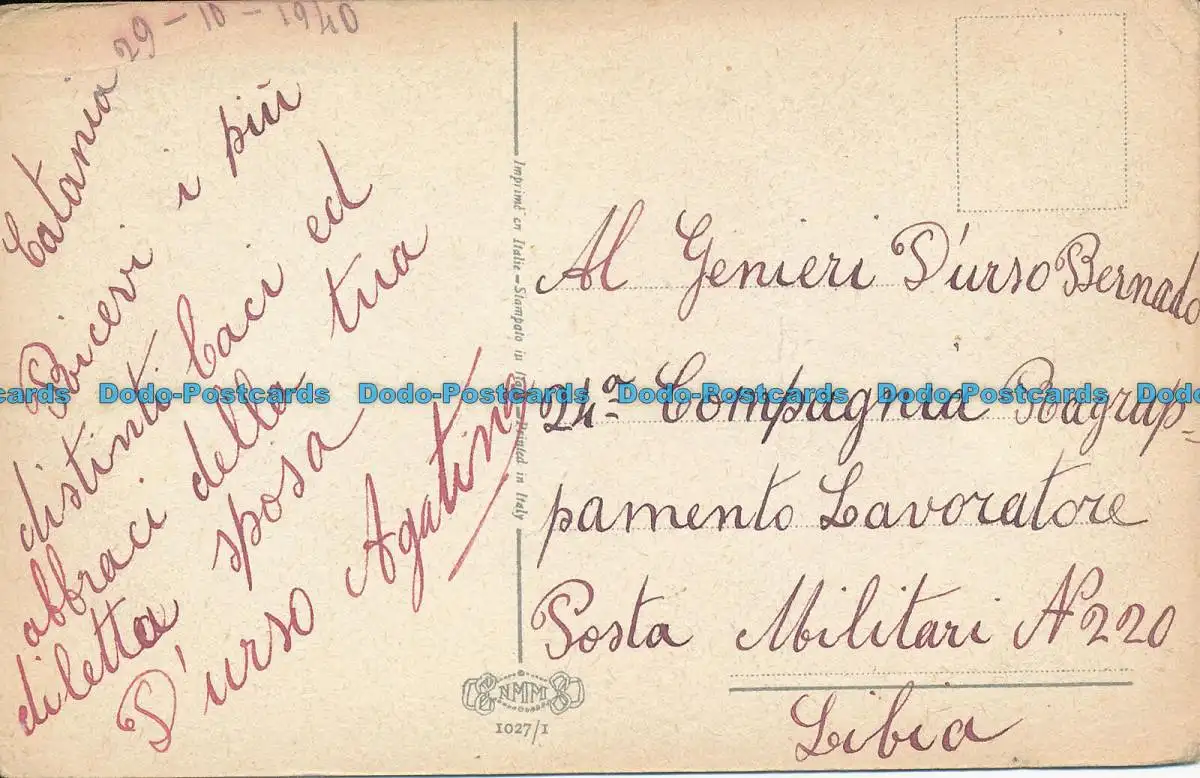 Catania 29-10-1940
Ricevi i più
distinti baci ed
abbraci della tua
diletta sposa
D'urso Agatina
Imprimé en Italie - Stampato in Italia - Printed in Italy
NMM
1027/1
Al Genieri D'urso Bernado
24ª Compagnia Ragrup-
pamento Lavoratore
Posta Militari Nº 220
Libia
Dodo-Postcards Dodo-Postcards Dodo-Postcards Dodo-Postcards Dodo-Postcards